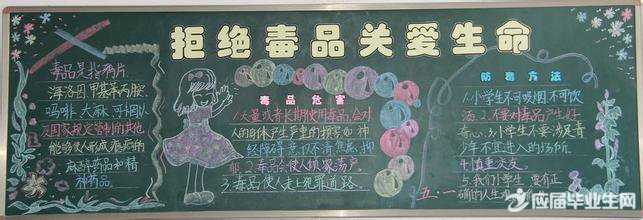 拒绝毒品关爱生命
毒品是指鸦片
海洛因甲基苯丙胺
吗啡 大麻 可卡因以
及国家规定管制的其他
能够使人形成瘾癖的
麻醉药品和精
神药品。
毒品危害
1.大量或者长期使用毒品,会对
人的身体产生严重的损害如神
经障碍
2.毒品会使人倾家荡产。
3.毒品使人走上犯罪道路。
防毒方法
1.小学生不可吸烟不可饮
酒。2.不要对毒品产生好
奇心。3.小学生不要涉足青
少年不宜进入的场所。
4.慎重交友。
5.我们小学生 要有正
确的人生
五.一
应届毕业生网